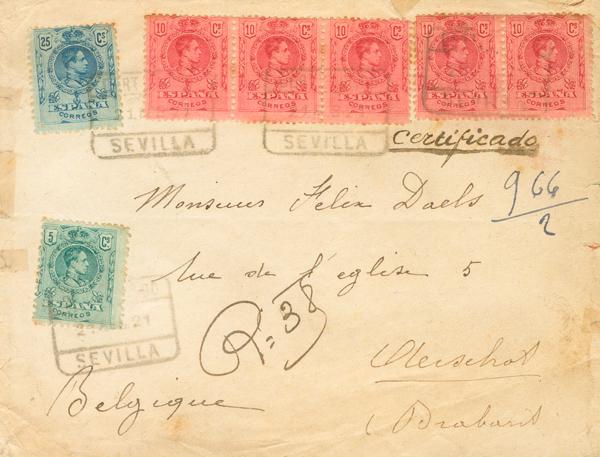 25 Cs 10 Cs 10 Cs 10 Cs 10 Cs 10 Cs
ESPAÑA ESPAÑA ESPAÑA ESPAÑA ESPAÑA ESPAÑA
CORREOS CORREOS CORREOS CORREOS CORREOS CORREOS
SEVILLA SEVILLA
Certificado
Monsieur Felix Daels
966/2
5 Cs
Rue de l'eglise 5
ESPAÑA
CORREOS
21
SEVILLA
R=38
Aerschot
Belgique
Brabant